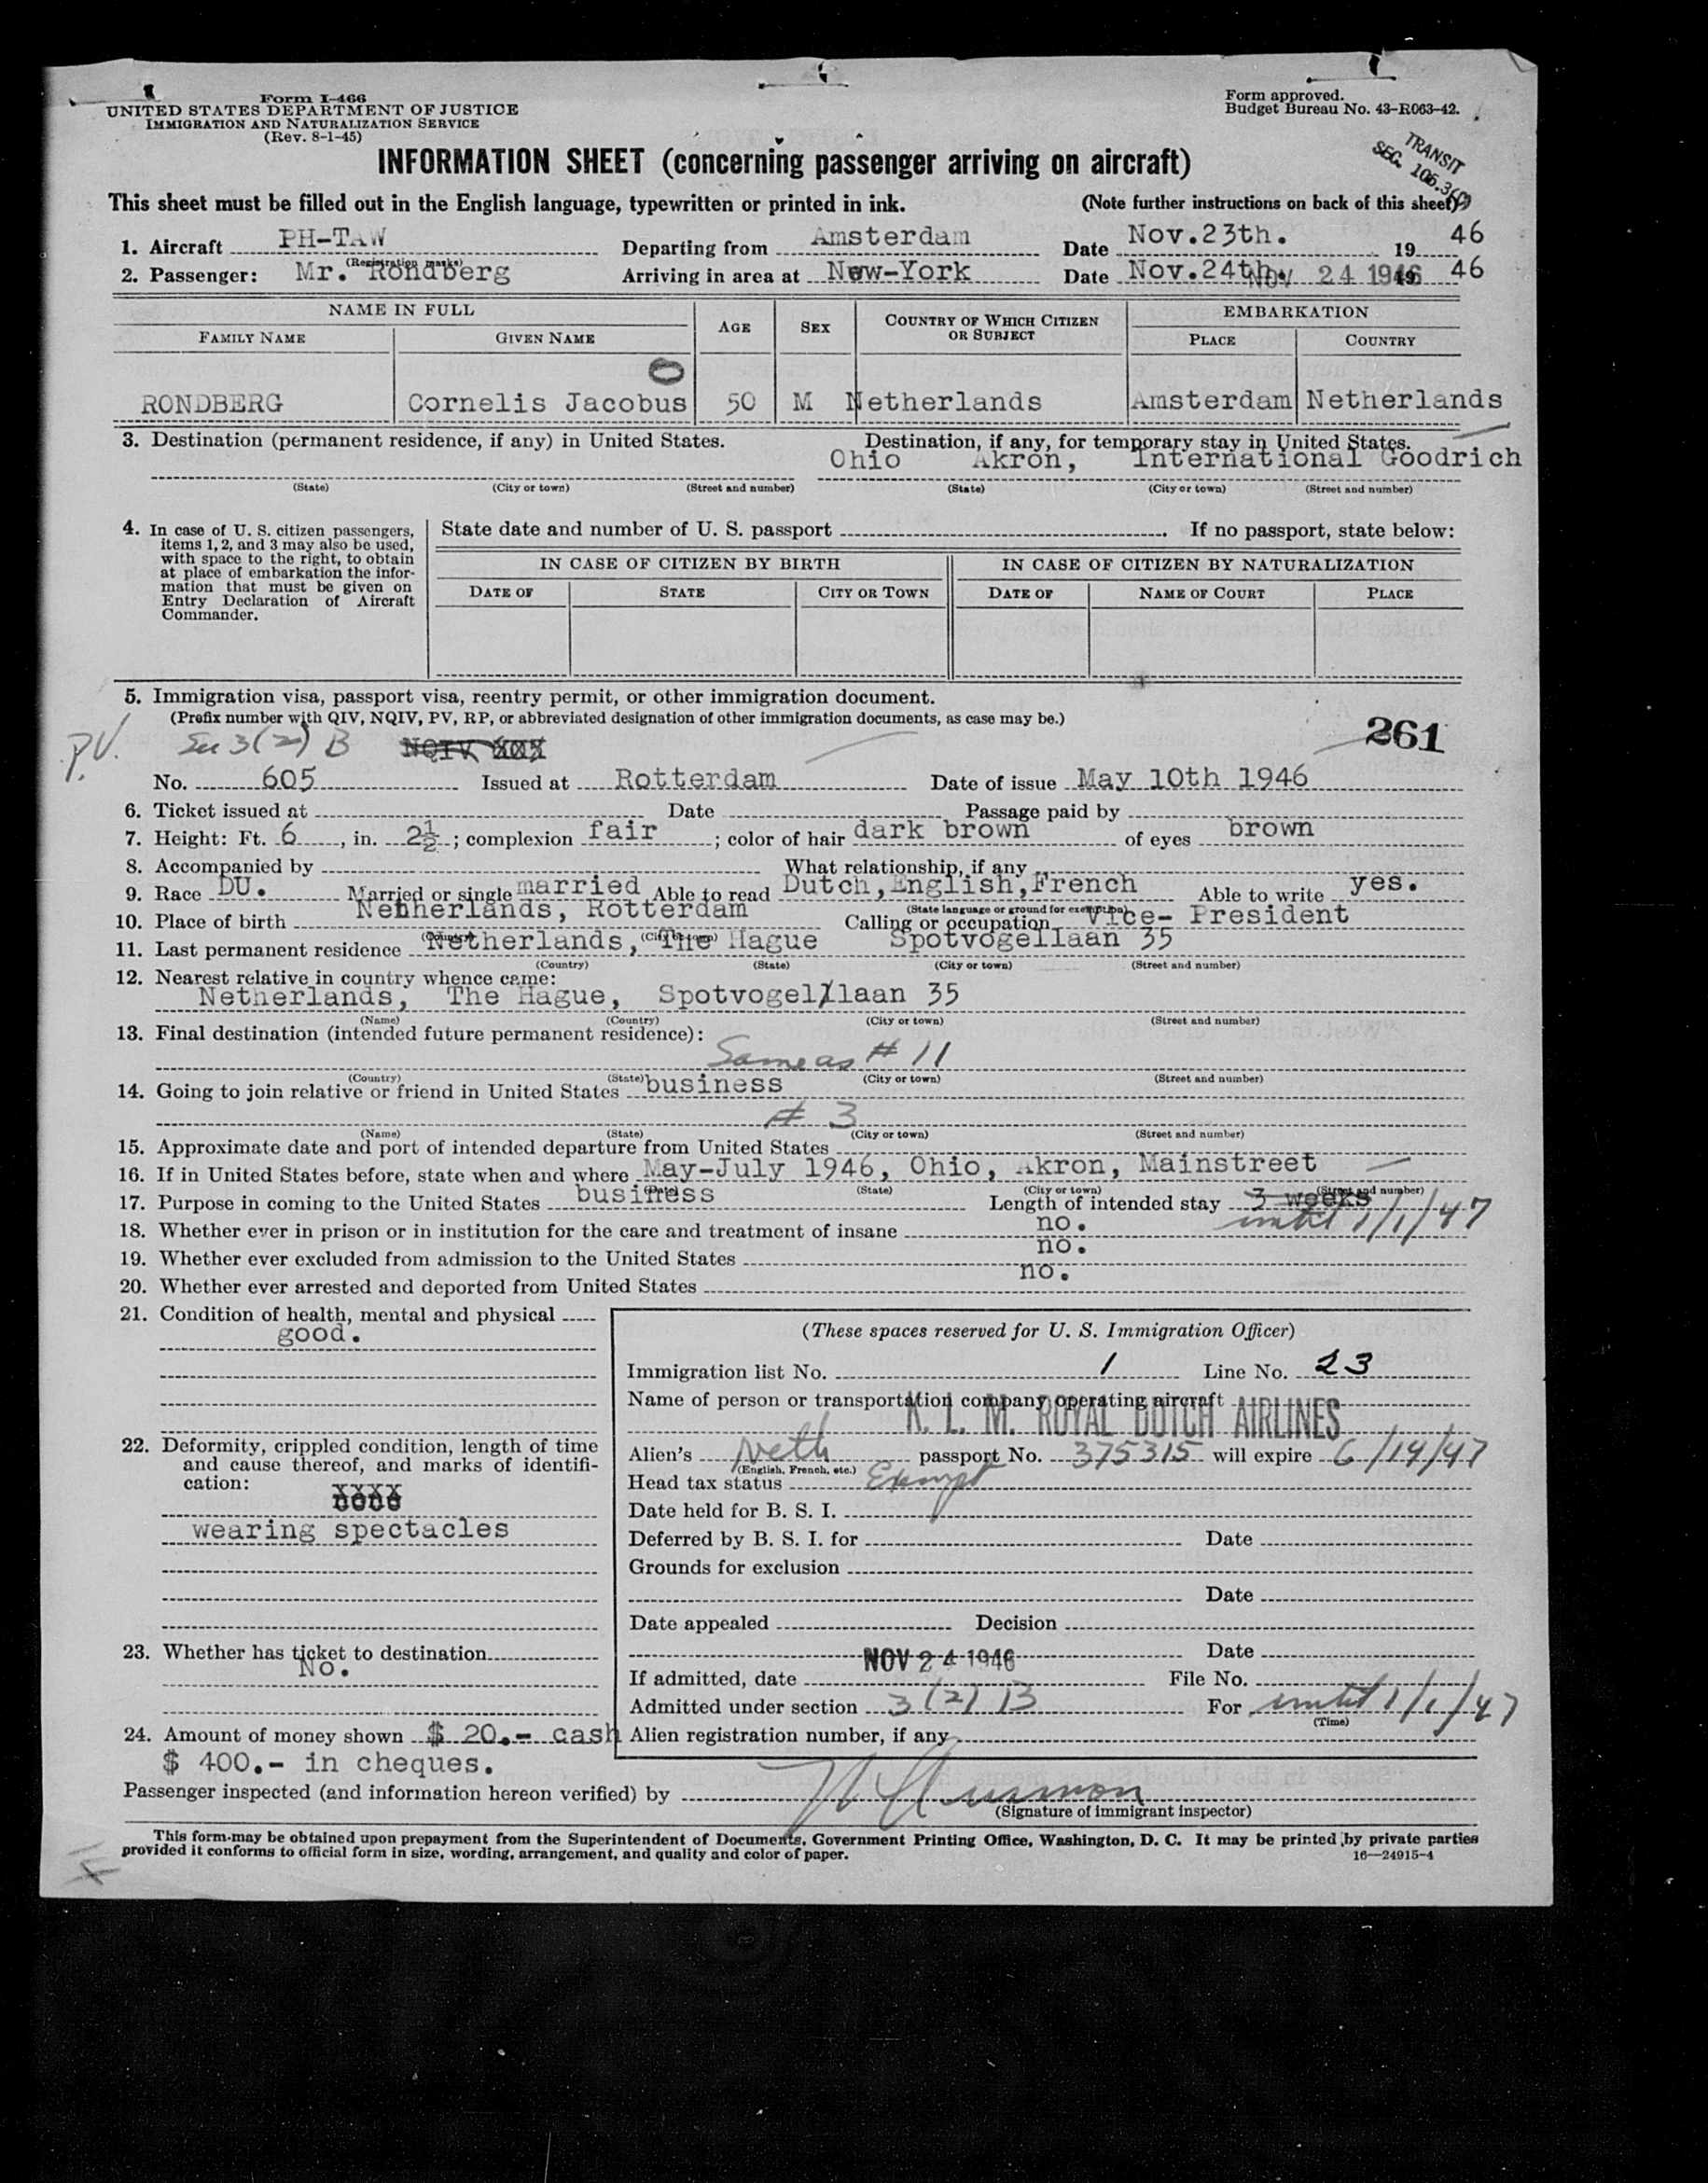 Form I-466
UNITED STATES DEPARTMENT OF JUSTICE
IMMIGRATION AND NATURALIZATION SERVICE
(Rev. 8-1-45)
Form approved.
Budget Bureau No. 43-R063-42.
TRANSIT
SEC. 105.3(f)
INFORMATION SHEET (concerning passenger arriving on aircraft)
This sheet must be filled out in the English language, typewritten or printed in ink. (Note further instructions on back of this sheet)
1. Aircraft PH-TAW Departing from Amsterdam Date Nov.23th. 19 46
(Registration marks)
2. Passenger: Mr. Rondberg Arriving in area at New-York Date Nov.24th. NOV 24 1946 19 46
NAME IN FULL AGE SEX COUNTRY OF WHICH CITIZEN OR SUBJECT EMBARKATION
FAMILY NAME GIVEN NAME PLACE COUNTRY
0
RONDBERG Cornelis Jacobus 50 M Netherlands Amsterdam Netherlands
3. Destination (permanent residence, if any) in United States. Destination, if any, for temporary stay in United States.
Ohio Akron, International Goodrich
(State) (City or town) (Street and number) (State) (City or town) (Street and number)
4. In case of U. S. citizen passengers,
items 1, 2, and 3 may also be used,
with space to the right, to obtain
at place of embarkation the infor-
mation that must be given on
Entry Declaration of Aircraft
Commander.
State date and number of U. S. passport . If no passport, state below:
IN CASE OF CITIZEN BY BIRTH IN CASE OF CITIZEN BY NATURALIZATION
DATE OF STATE CITY OR TOWN DATE OF NAME OF COURT PLACE
5. Immigration visa, passport visa, reentry permit, or other immigration document.
(Prefix number with QIV, NQIV, PV, RP, or abbreviated designation of other immigration documents, as case may be.)
261
P.V. 3(2) B NQIV
No. 605 Issued at Rotterdam Date of issue May 10th 1946
6. Ticket issued at Date Passage paid by
7. Height: Ft. 6, in. 2½; complexion fair; color of hair dark brown of eyes brown
8. Accompanied by What relationship, if any
9. Race DU. Married or single married Able to read Dutch,English,French Able to write yes.
(State language or ground for exemption)
10. Place of birth Netherlands, Rotterdam Calling or occupation Vice- President
(Country) (City or town)
11. Last permanent residence Netherlands, The Hague Spotvogellaan 35
(Country) (State) (City or town) (Street and number)
12. Nearest relative in country whence came:
Netherlands, The Hague, Spotvogel/laan 35
(Name) (Country) (City or town) (Street and number)
13. Final destination (intended future permanent residence):
Same as # 11
(Country) (State) (City or town) (Street and number)
14. Going to join relative or friend in United States business
# 3
(Name) (State) (City or town) (Street and number)
15. Approximate date and port of intended departure from United States
16. If in United States before, state when and where May-July 1946, Ohio, Akron, Mainstreet
(Date) (State) (City or town) (Street and number)
17. Purpose in coming to the United States business Length of intended stay 3 weeks
until 1/1/47
18. Whether ever in prison or in institution for the care and treatment of insane no.
19. Whether ever excluded from admission to the United States no.
20. Whether ever arrested and deported from United States no.
21. Condition of health, mental and physical
good.
(These spaces reserved for U. S. Immigration Officer)
Immigration list No. 1 Line No. 23
Name of person or transportation company operating aircraft
K. L. M. ROYAL DUTCH AIRLINES
22. Deformity, crippled condition, length of time
and cause thereof, and marks of identifi-
cation:
xxxx
wearing spectacles
Alien's Neth passport No. 375315 will expire 6/14/47
(English, French, etc.)
Head tax status Exempt
Date held for B. S. I.
Deferred by B. S. I. for Date
Grounds for exclusion
Date
Date appealed Decision
Date
23. Whether has ticket to destination
No.
If admitted, date NOV 24 1946 File No.
Admitted under section 3(2) B For until 1/1/47
(Time)
24. Amount of money shown $ 20.- cash
$ 400.- in cheques.
Alien registration number, if any
Passenger inspected (and information hereon verified) by
(Signature of immigrant inspector)
This form may be obtained upon prepayment from the Superintendent of Documents, Government Printing Office, Washington, D. C. It may be printed by private parties
provided it conforms to official form in size, wording, arrangement, and quality and color of paper. 16—24915-4